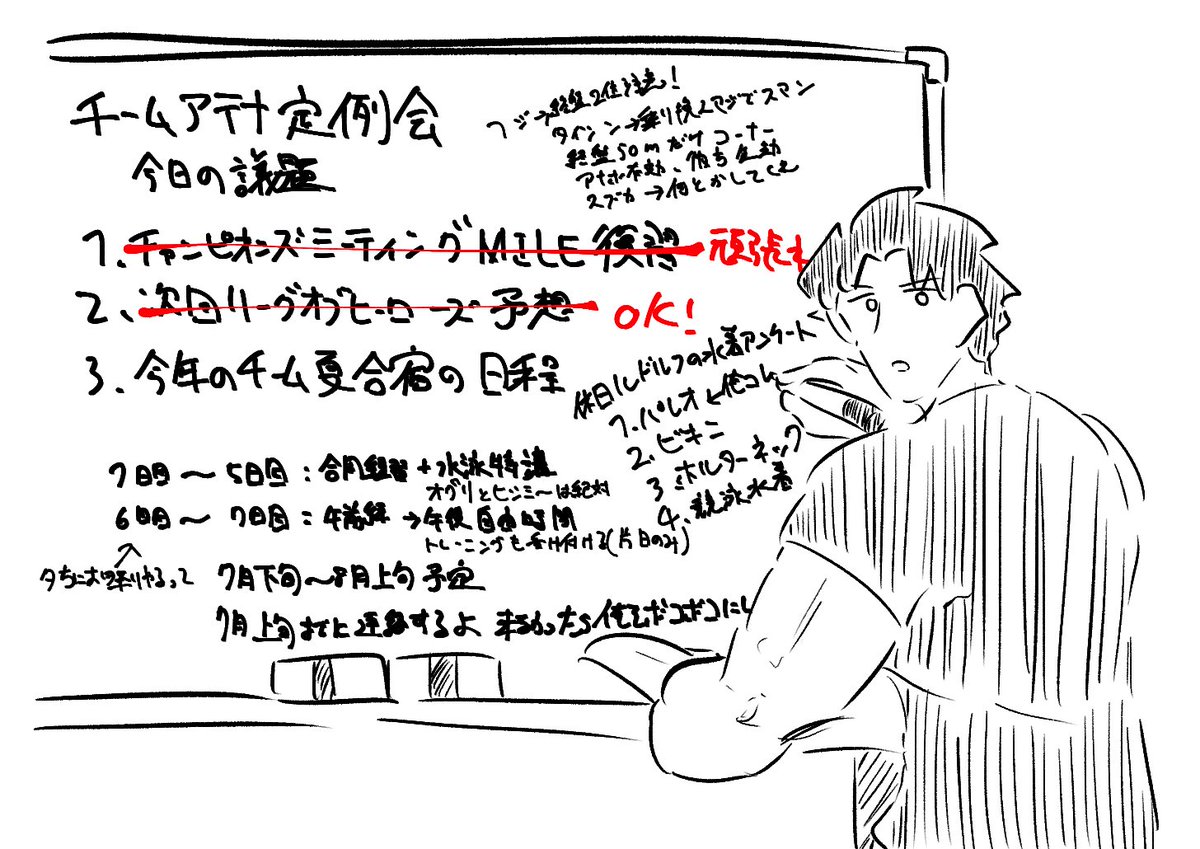 チームアテナ定例会
今日の議題
1. チャンピオンズミーティングMILE復習 頑張れ
2. 次回リーグオブヒーローズ予想 OK!
3. 今年のチーム夏合宿の日程
フジ→終盤2位注意!
タイシン→乗り換えマジでスマン
終盤50mだけコーナー
スズカ→何とかしてくれ
休日ルドルフの水着アンケート
1. パレオ←
2. ビキニ
3. ホルターネック
4. 競泳水着
1日目〜5日目:合同練習+水泳特訓
オグリとヒシミーは絶対
6日目〜7日目:午前練→午後自由時間
トレーニングも受け付ける(片日のみ)
7月下旬〜8月上旬予定
7月上旬までに連絡するよ